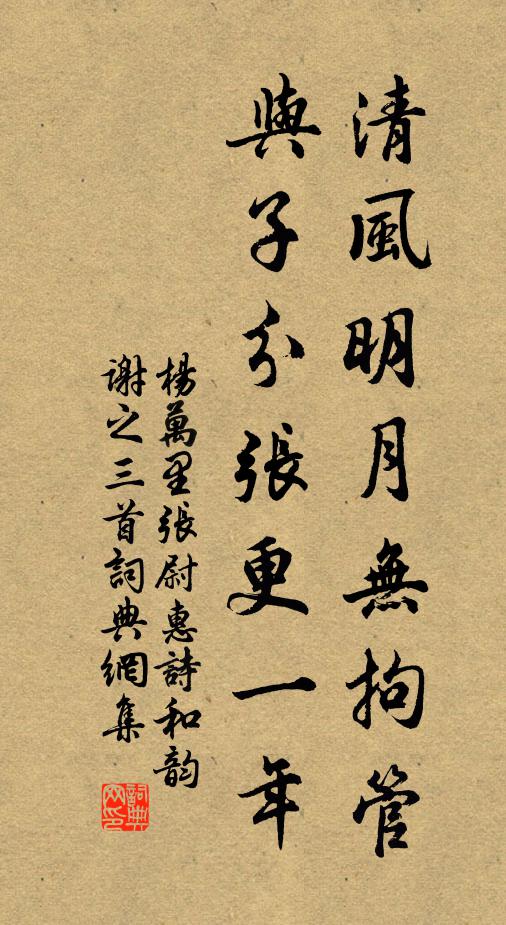 清風明月無拘管
與子分張更一年
楊萬里張尉惠詩和韵
謝之三首詞典網集
詞典网印